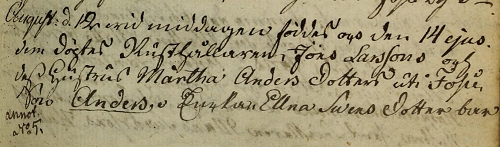 August: d. 12 vid middagen föddes och den 14 ejus.
dem döptes Rusthållaren, Jöns Larssons och
des Hustrus Märtha Anders Dotters uti
Son Anders, Ellna Svens Dotter bar
annot.
N:o 5.